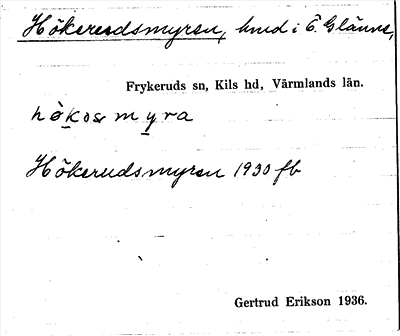 Hökerudsmyren, hmd i Ö. Glänne,
Frykeruds sn, Kils hd, Värmlands län.
Hökerudsmyren 1930 fb
Gertrud Erikson 1936.